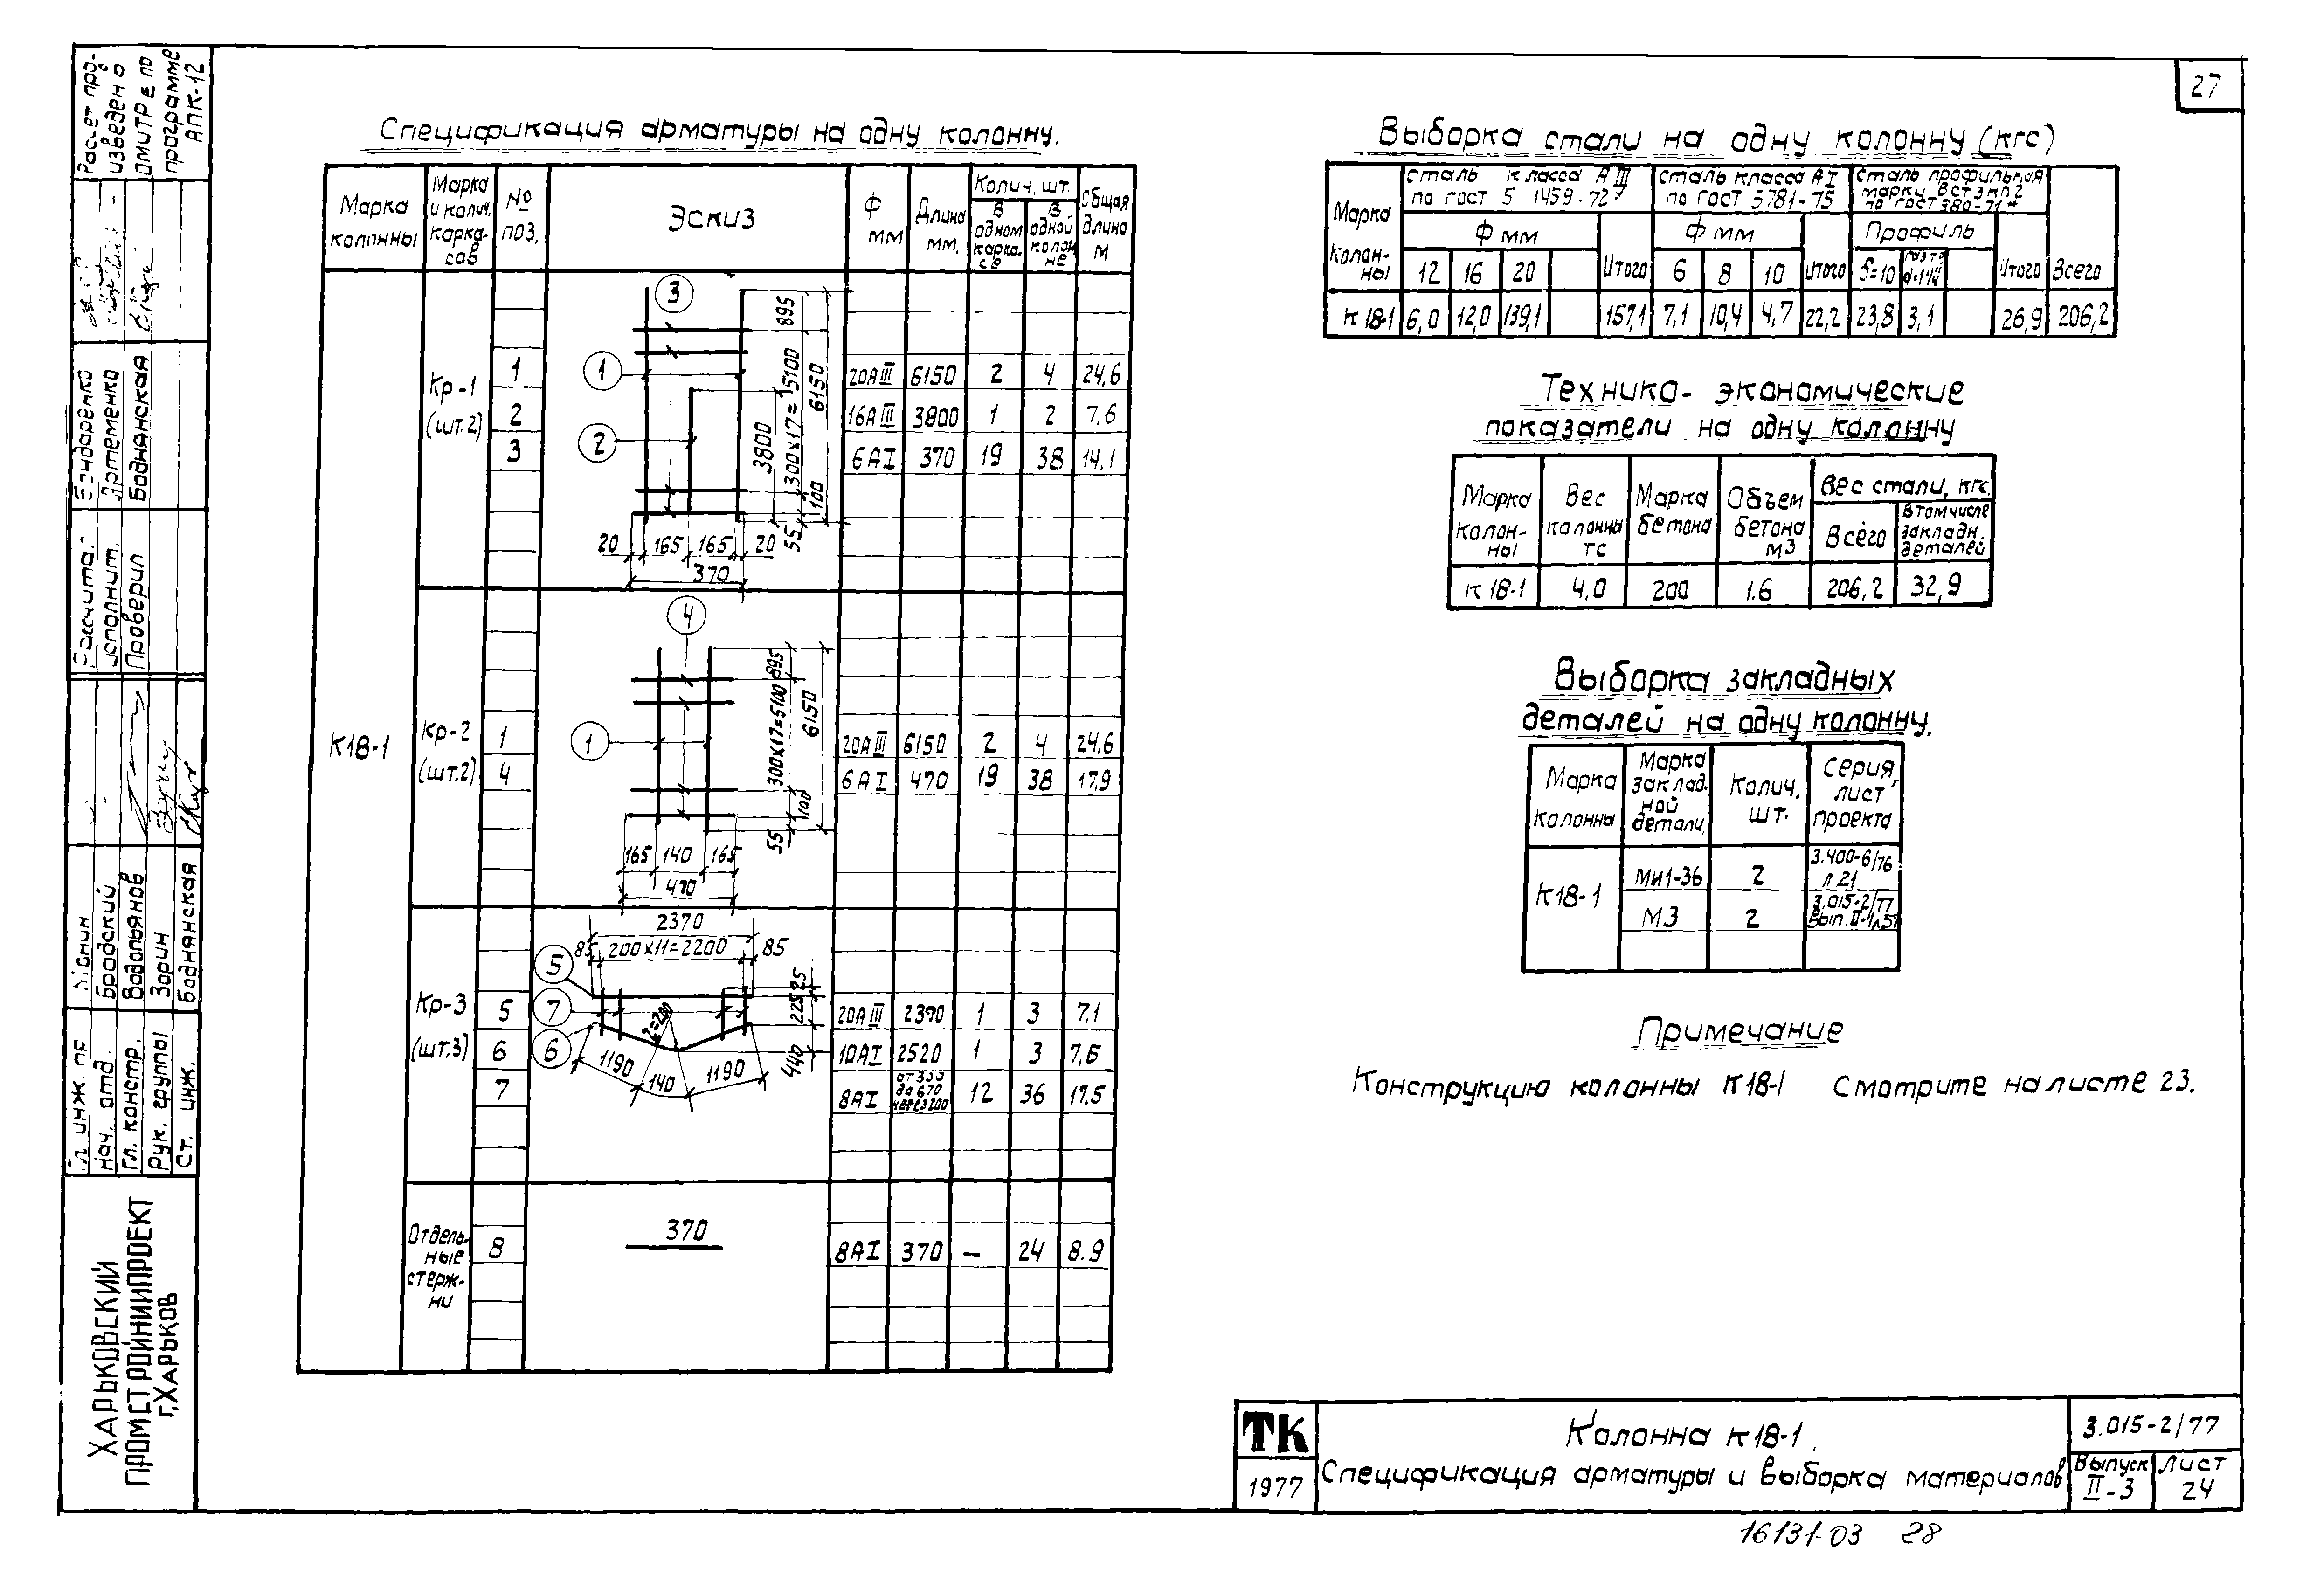 27
Спецификация арматуры на одну колонну.
Марка колонны
Марка и колич. карка-сов
№ поз.
Эскиз
Ф мм
Длина мм.
Колич. шт.
В одном карка-се
В одной колон не
Общая длина м
К18-1
Кр-1 (шт.2)
1 20АIII 6150 2 4 24,6
2 16АIII 3800 1 2 7,6
3 6АI 370 19 38 14,1
3
1
2
895
300х17=5100
6150
3800
100
55
20 165 165 20
370
Кр-2 (шт.2)
1 20АIII 6150 2 4 24,6
4 6АI 470 19 38 17,9
4
1
895
300х17=5100
6150
100
55
165 140 165
470
Кр-3 (шт.3)
5 20АIII 2390 1 3 7,1
6 10АI 2520 1 3 7,6
7 8АI от 355 до 670 через 200 12 36 17,5
2370
85 200х11=2200 85
5
7
6
225 25
440
1190 140 1190
Отдель-ные стерж-ни
8 370 8АI 370 — 24 8.9
Выборка стали на одну колонну (кгс)
Марка колон-ны
Сталь класса АIII по ГОСТ 5 1459-72*
Сталь класса АI по ГОСТ 5781-75
Сталь профильная марки ВСт3кп2 по ГОСТ 380-71*
Ф мм
Ф мм
Профиль
12 16 20 Итого 6 8 10 Итого δ=10 Итого Всего
К18-1 6,0 12,0 139,1 157,1 7,1 10,4 4,7 22,2 23,8 3,1 26,9 206,2
Технико-экономические
показатели на одну колонну
Марка колон-ны
Вес колонны тс
Марка бетона
Объем бетона м3
Вес стали, кгс.
Всего
В том числе закладн. деталей
К18-1 4,0 200 1.6 206,2 32,9
Выборка закладных
деталей на одну колонну.
Марка колонны
Марка заклад. ной детали,
Колич. шт.
Серия, лист проекта
К18-1
МИ1-36 2 3.400-6/76 л 21
М3 2 3.015-2/77 Вып. II-1
Примечание
Конструкцию колонны К18-1 смотрите на листе 23.
ТК
1977
Колонна К18-1.
Спецификация арматуры и выборка материалов
3.015-2/77
Выпуск II-3
Лист 24
16131-03 28
Расчет про-
изведен о
ОМИТР Е по
программе
АПК-12
Бондаренко
Артеменко
Боднянская
исполнит.
Проверил
Бродский
Водопьянов
Зорин
Боднянская
Гл. инж. пр
Нач. отд.
Гл. констр.
Рук. группы
Ст. инж.
ХАРЬКОВСКИЙ
ПРОМСТРОЙНИИПРОЕКТ
г. ХАРЬКОВ